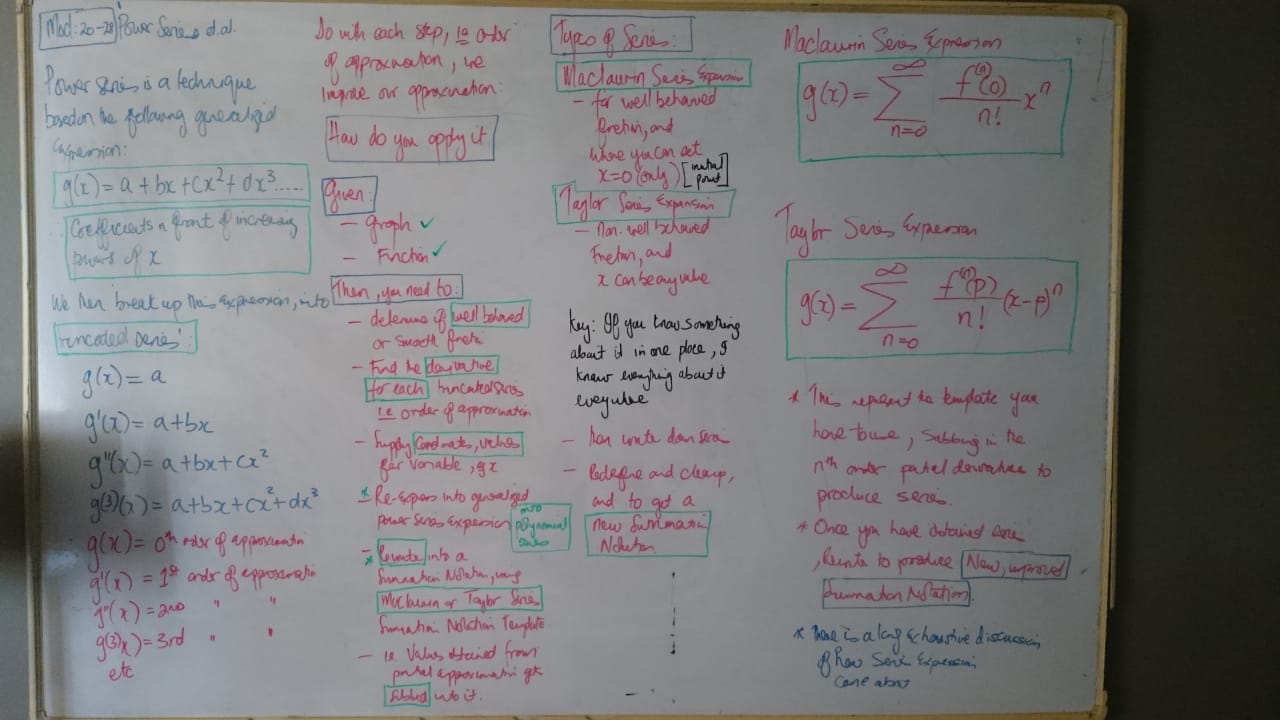 Mod: 20-28 Power Series et.al.
Power series is a technique
based on the following generalized
expression:
g(x) = a + bx + cx² + dx³.....
Coefficients in front of increasing
powers of x
We then break up this expression, into
'truncated series':
g(x) = a
g'(x) = a+bx
g''(x) = a+bx+cx²
g(3)(x) = a+bx+cx²+dx³
g(x) = 0th order of approximation
g'(x) = 1st order of approximation
g''(x) = 2nd " "
g(3)x) = 3rd " "
etc
So with each step, ie order
of approximation, we
improve our approximation:
How do you apply it
Given:
- Graph ✓
- Function ✓
Then, you need to:
- determine if well behaved
or smooth function
- Find the derivative
for each truncated series
i.e order of approximation
- Supply coordinates, values
for variable, g x
* Re-express into generalized
power series expression into
polynomial
series
* Rewrite into a
Summation Notation, using
Maclaurin or Taylor Series
Summation Notation Template
- i.e. Values obtained from
partial approximation get
subbed into it.
Types of Series:
Maclaurin Series Expansion
- for well behaved
function, and
where you can set
x=0 (only) [initial
point]
Taylor Series Expansion
- Non-well behaved
function, and
x can be any value
Key: If you know something
about it in one place, I
know everything about it
everywhere
- then write down series
- Redefine and cleanup,
and to get a
new Summation
Notation
Maclaurin Series Expression
g(x) = ∞ ∑ n=0 f⁽ⁿ⁾(0)/n! xⁿ
Taylor Series Expression
g(x) = ∞ ∑ n=0 f⁽ⁿ⁾(p)/n! (x-p)ⁿ
* This represent the template you
have to use, subbing in the
nth order partial derivatives to
produce series.
* Once you have obtained series
, Rewrite to produce New, improved
Summation Notation
* There is a long exhaustive discussion
of how Series Expression
came about